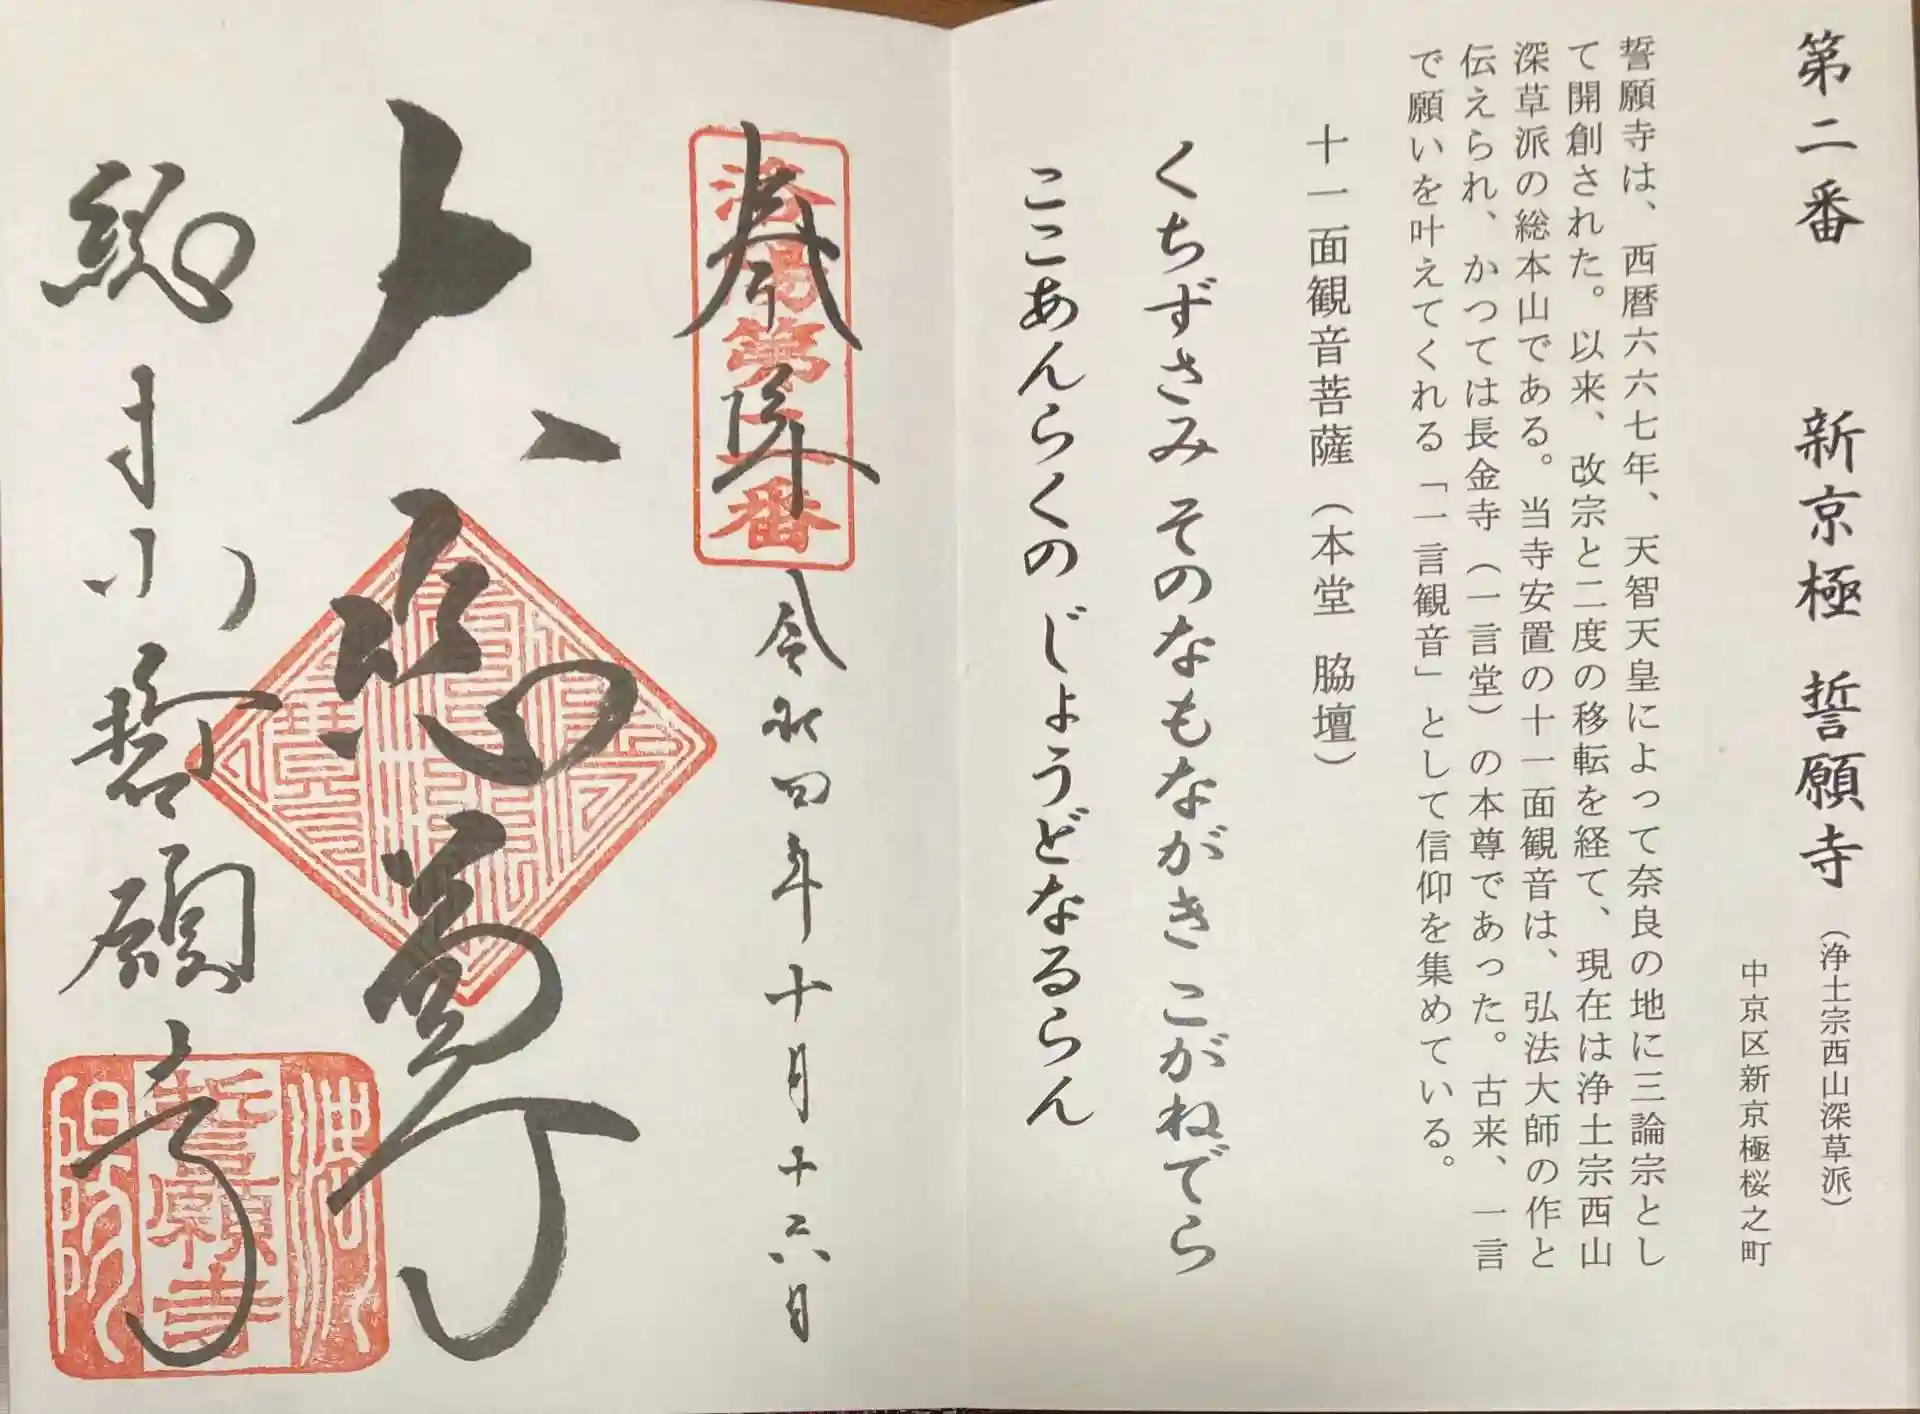 第二番 新京極 誓願寺 （浄土宗西山深草派）
中京区新京極桜之町
誓願寺は、西暦六六七年、天智天皇によって奈良の地に三論宗とし
て開創された。以来、改宗と二度の移転を経て、現在は浄土宗西山
深草派の総本山である。当寺安置の十一面観音は、弘法大師の作と
伝えられ、かつては長金寺（一言堂）の本尊であった。古来、一言
で願いを叶えてくれる「一言観音」として信仰を集めている。
十一面観音菩薩（本堂 脇壇）
くちずさみ そのなもながき こがねでら
ここあんらくの じょうどなるらん
奉拝
洛陽第二番
令和四年十月十六日
大悲尊
総本山誓願寺
誓願寺